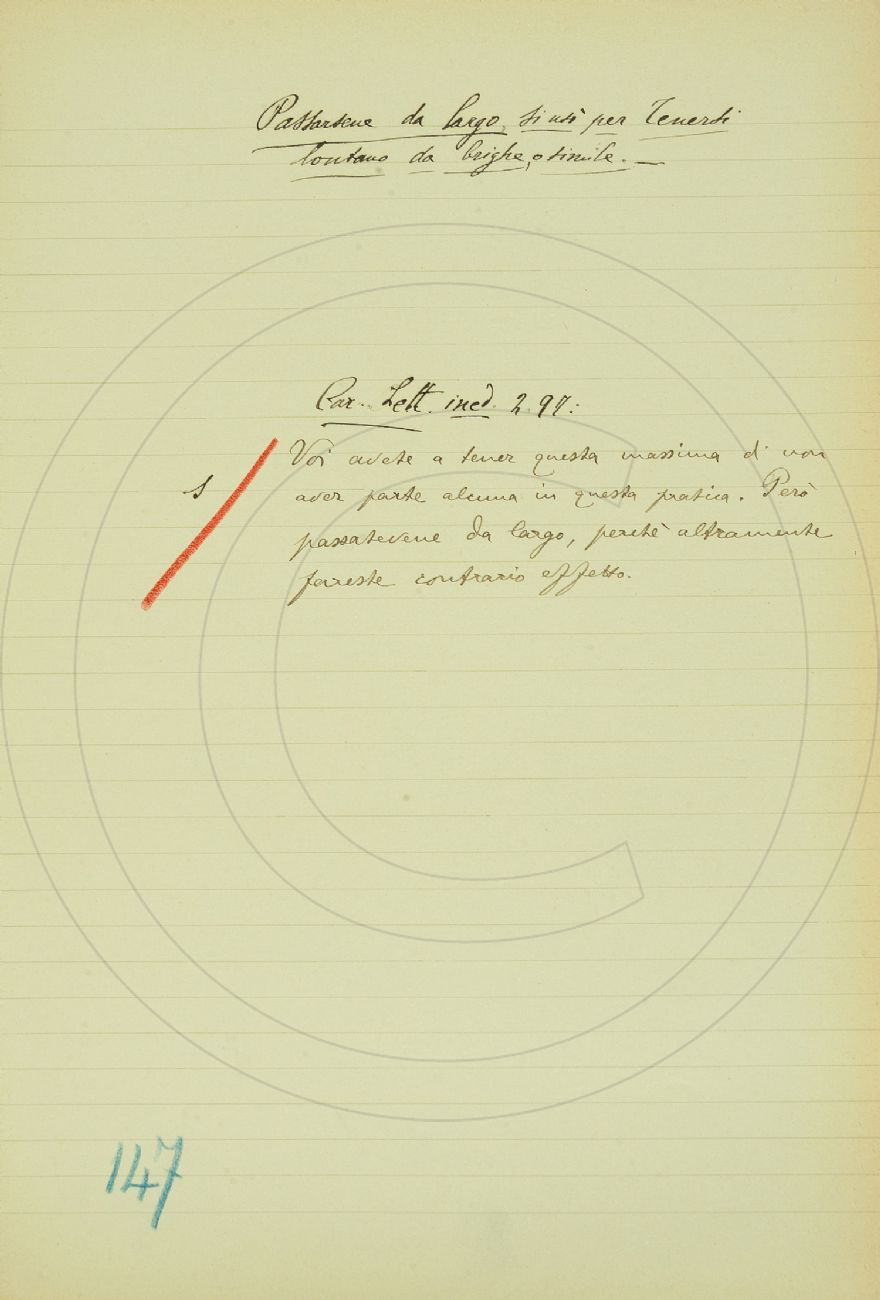 Passarsene da largo, si usò per Tenersi
lontano da brighe, o simile. —
Car. Lett. ined. 2. 97:
Voi avete a tener questa massima di non
s
aver parte alcuna in questa pratica. Però
passatevene da largo, perchè altramente
fareste contrario effetto.
147